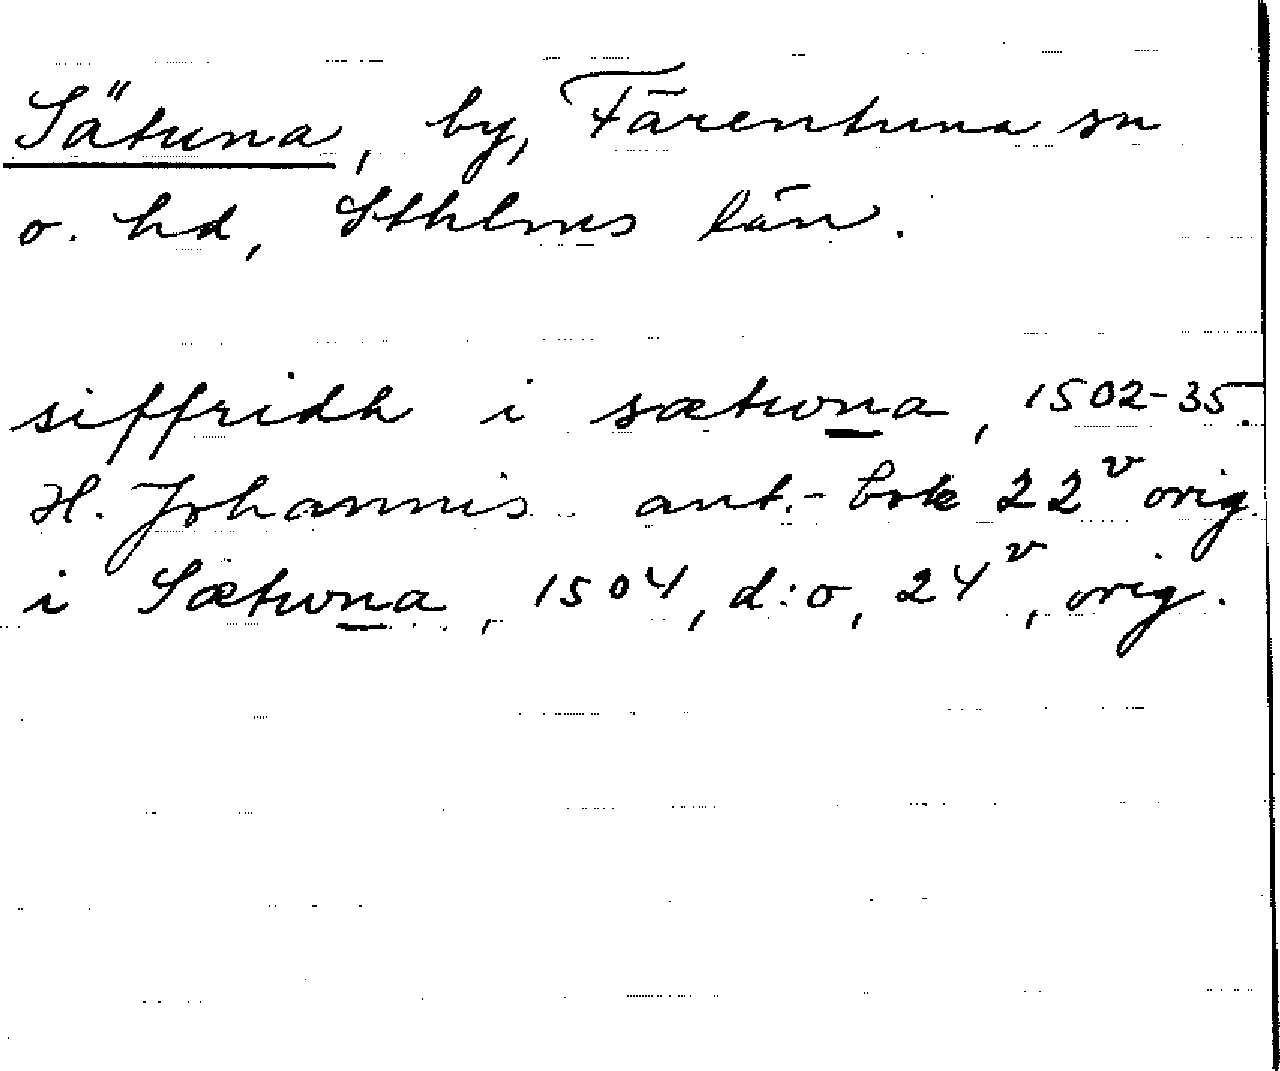 Sätuna, by, Färentuna sn
o. hd, Sthlms län.
siffridh i sætwna, 1502-35.
H. Johannis ant.-bok 22v orig.
i Sætwna, 1504, d:o, 24v, orig.